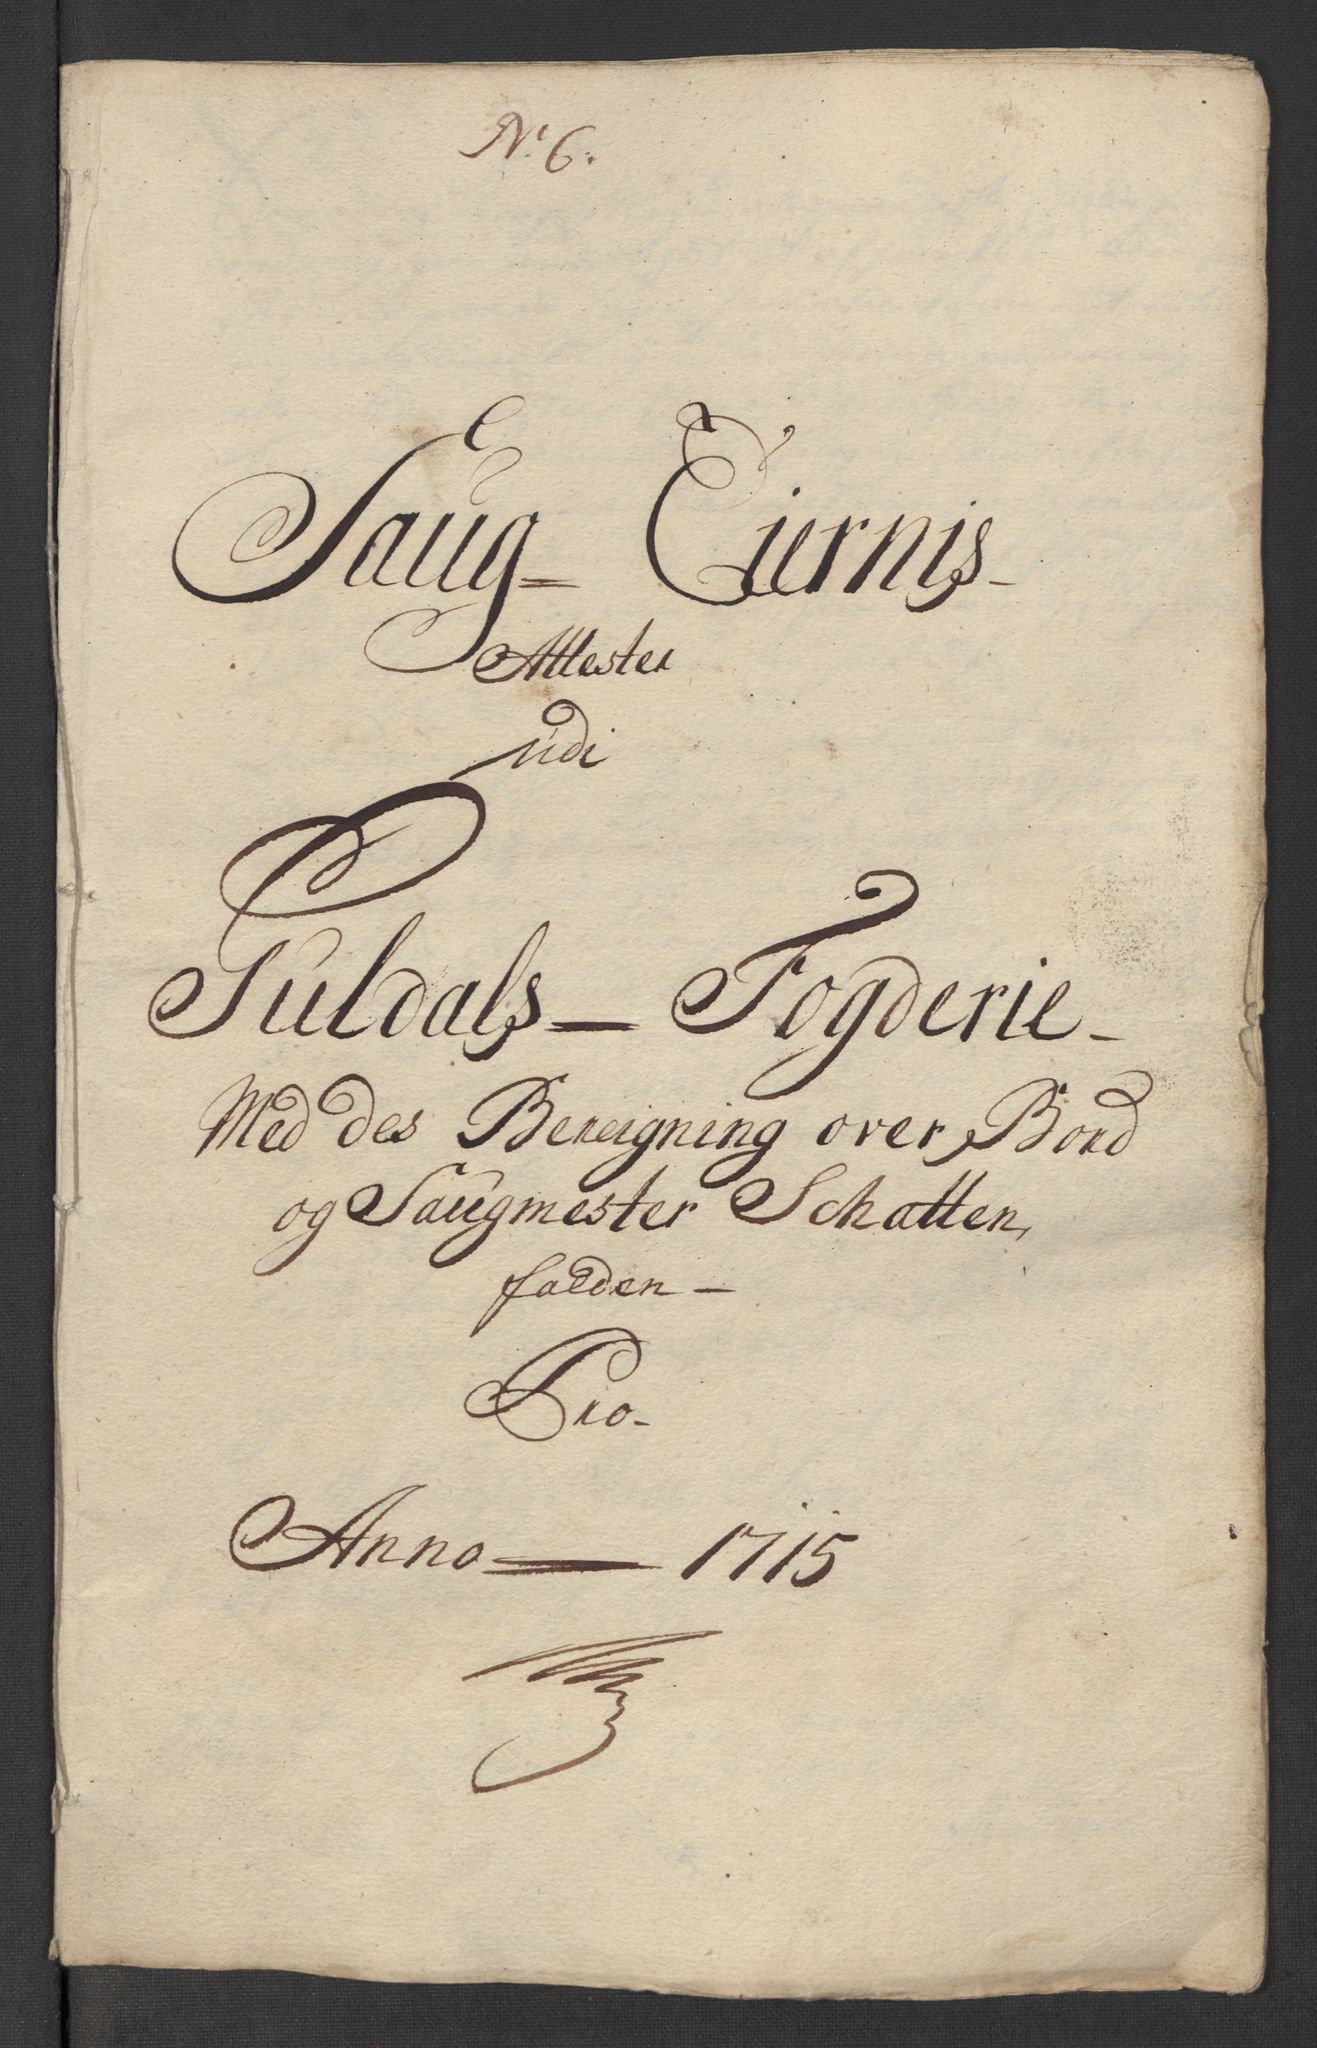 No 6.
Saug- Eiernis-
Attester
udi
Guldals- Fogderie-
Med des Bereigning over Bord
og Saugmester Schatten,
falden-
Pro-
Anno- 1715